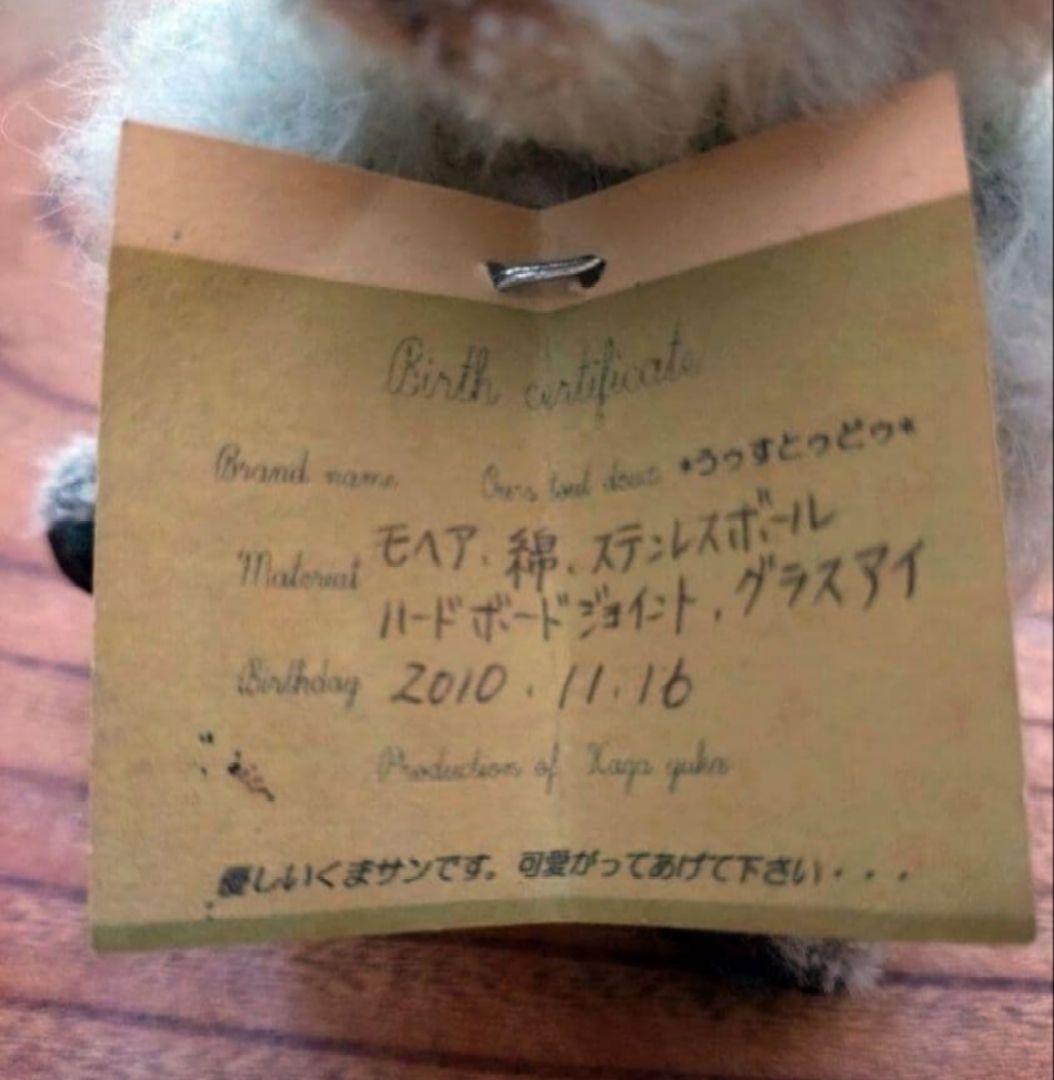 Birth certificate
Brand name Ours tout doux *うっすとぅどぅ*
Material モヘア、綿、ステンレスボール
ハードボードジョイント、グラスアイ
Birthday 2010.11.16
Production of Kaga yuka
優しいくまサンです。可愛がってあげて下さい・・・